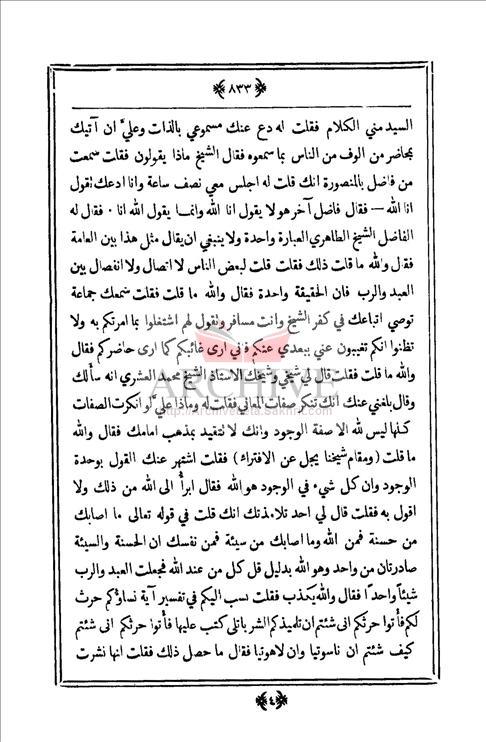 ٨٣٣
السيد مني الكلام فقلت له دع عنك مسموعي بالذات وعليَّ ان آتيك
بمحاضر من الوف من الناس بما سمعوه فقال الشيخ ماذا يقولون فقلت سمعت
من فاضل بالمنصورة انك قلت له اجلس معي نصف ساعة وانا ادعك نقول
انا الله — فقال فاضل آخر هو لا يقول انا الله وانما يقول الله انا . فقال له
الفاضل الشيخ الطاهري العبارة واحدة ولا ينبغي ان يقال مثل هذا بين العامة
فقال والله ما قلت ذلك فقلت قلت لبعض الناس لا اتصال ولا انفصال بين
العبد والرب فان الحقيقة واحدة فقال والله ما قلت فقلت سمعك جماعة
توصي اتباعك في كفر الشيخ وانت مسافر وتقول لهم اشتغلوا بما امرتكم به ولا
تظنوا انكم تغيبون عني ببعدي عنكم فاني ارى غائبكم كما ارى حاضركم فقال
والله ما قلت فقلت قال لي شيخي وشيخك الاستاذ الشيخ محمد العشري انه سألك
وقال بلغني عنك انك تنكر صفات المعاني فقلت له وماذا علي لو انكرت الصفات
كلها ليس لله الا صفة الوجود وانك لا نتقيد بمذهب امامك فقال والله
ما قلت (ومقام شيخنا يجل عن الافتراء) فقلت اشتهر عنك القول بوحدة
الوجود وان كل شيء في الوجود هو الله فقال ابرأ الى الله من ذلك ولا
اقول به فقلت قال لي احد تلامذتك انك قلت في قوله تعالى ما اصابك
من حسنة فمن الله وما اصابك من سيئة فمن نفسك ان الحسنة والسيئة
صادرتان من واحد وهو الله بدليل قل كل من عند الله فجعلت العبد والرب
شيئًا واحدًا فقال والله يكذب فقلت نسب اليكم في تفسير آية نساؤكم حرث
لكم فأتوا حرثكم انى شئتم ان تلميذكم الشرباتلي كتب عليها فأتوا حرثكم انى شئتم
كيف شئتم ان ناسوتيا وان لاهوتيا فقال ما حصل ذلك فقلت انها نشرت
ARCHIVE
٤